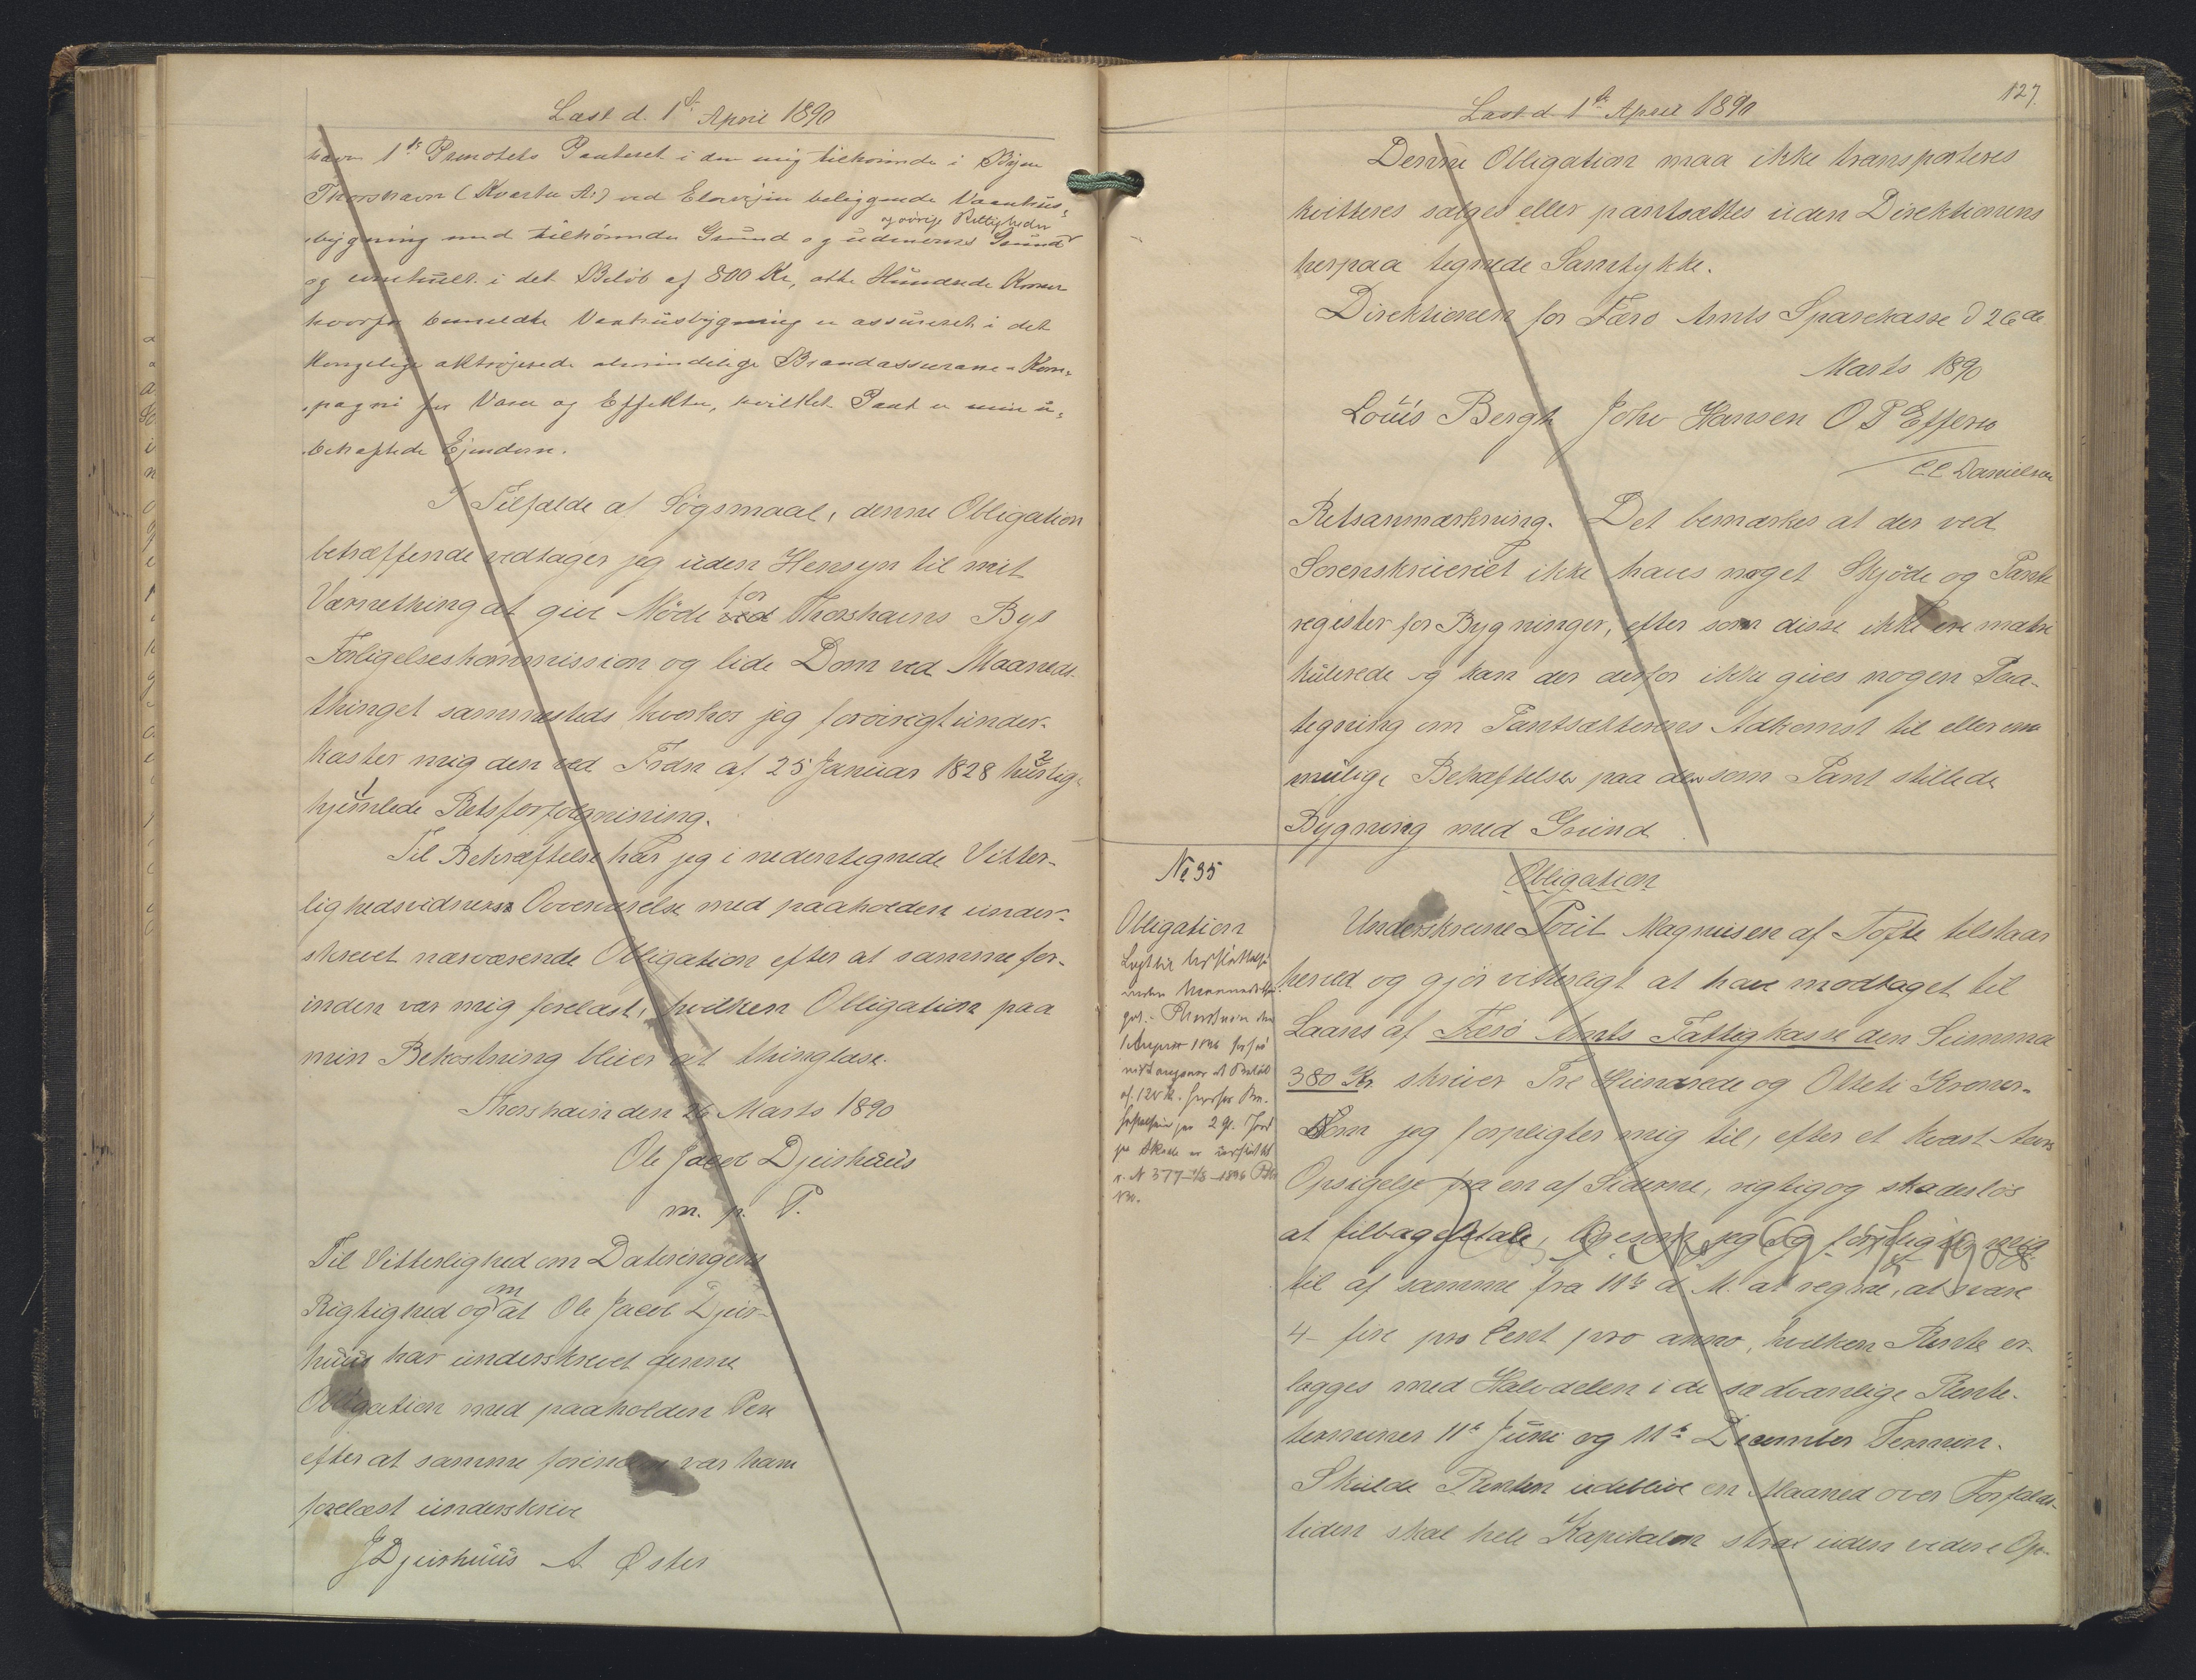 Læst d. 1ste April 1890
havn 1ste Prioritets Panteret i den mig tilhørende i Byen
Thorshavn (Kvarter A.) ved beliggende Vaanhus-
bygning med tilhørende Grund og udenoms Grund
og øvrige Rettigheder
og indbo i det Beløb af 800 Kr, otte Hundrede Kroner
hvorfor bemeldte Vaanhusbygning er assureret i det
Kongelige oktrojerede almindelige Brandassurance-Kom-
pagni for Varer og Effekter, hvilket Pant er min u-
behæftede Ejendom.
I Tilfælde af Søgsmaal, denne Obligation
betræffende vedtager jeg uden Hensyn til mit
Værnething at give Møde ved for Thorshavns Bys
Forligelseskommission og lide Dom ved Maaneds-
thinget sammesteds hvorhos jeg forøvrigt under-
kaster mig den ved Frdn af 25 Januar 1828 hurtig-
hjemlede Retsforfølgning.
Til Bekræftelse har jeg i nedentegnede Vitter-
lighedsvidners Overværelse med paaholden under-
skrevet nærværende Obligation efter at samme for-
inden var mig forelæst, hvilken Obligation paa
min Bekostning bliver at thinglæse.
Thorshavn den 26 Marts 1890
Ole Jacob Djurhuus
m. p. P.
Til Vitterlighed om Dateringens
Rigtighed og om at Ole Jacob Djur-
huus har underskrevet denne
Obligation med paaholden Pen
efter at samme forinden var ham
forelæst underskrive
J Djurhuus A Øster
127.
Læst d 1ste April 1890
Denne Obligation maa ikke transporteres
kvitteres sælges eller pantsættes uden Direktionens
herpaa tegnede Samtykke.
Direktionen for Færø Amts Sparekasse d 26de
Marts 1890
Louis Bergh Johs Hansen O P Effersø
C C Danielsen
Retsanmærkning. Det bemærkes at der ved
Sorenskriveriet ikke haves noget Skjøde og Pante
register for Bygninger, efter som disse ikke ere matri
kulerede og kan der derfor ikke gives nogen Paa-
tegning om Pantsætterens Adkomst til eller om
mulige Behæftelser paa den som Pant stillede
Bygning med Grund.
No 35
Obligation
Obligation
Underskrevne Poul Magnusen af Tofte tilstaar
herved og gjør vitterligt at have modtaget til
Laans af Færø Amts Fattigkasse den Summa
380 Kr. skriver Tre Hundrede og Otteti Kroner.
Som jeg forpligter mig til, efter et kvart Aars
Opsigelse fra en af Siderne, rigtig og skadesløs
at tilbagebetale, ligesom jeg og forpligter mig
til af samme fra 11te d. M. at regne, at svare
4- fire pro Cent pro anno, hvilken Rente er-
lægges med Halvdelen i de sædvanlige Rente-
terminer 11te Juni og 11te December Termin.
Skulde Renten udeblive en Maaned over Forfalds-
tiden skal hele Kapitalen strax uden videre Op-